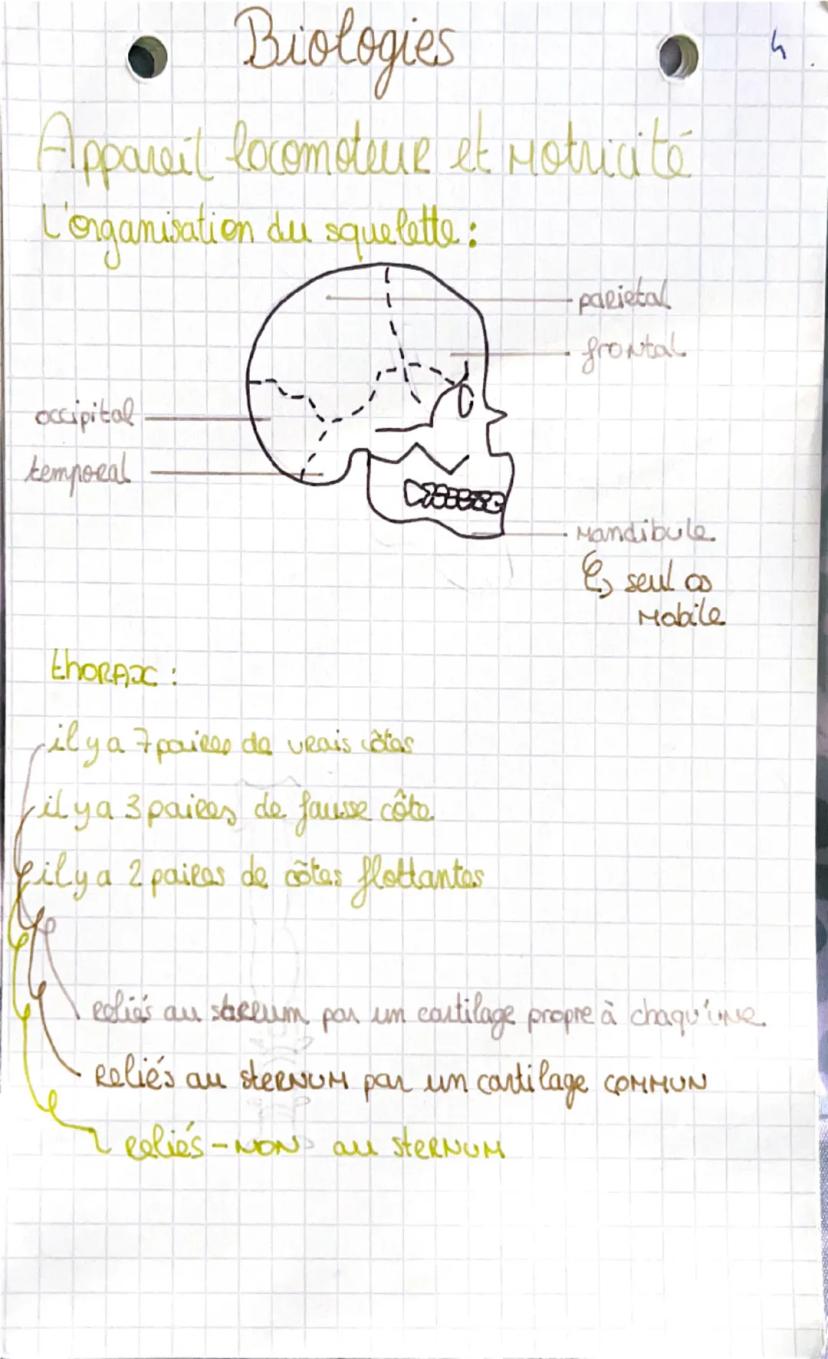 Biologies
4
Appareil locomoteur et Motricité
L'organisation du squelette :
parietal
frontal
occipital
temporal
Mandibule
↳ seul os
Mobile
thorax :
il y a 7 paires de vrais côtes
il y a 3 paires de fausse côte
il y a 2 paires de côtes flottantes
reliés au sternum par un cartilage propre à chaqu'une
Reliés au sternum par un cartilage commun
reliés - non au sternum